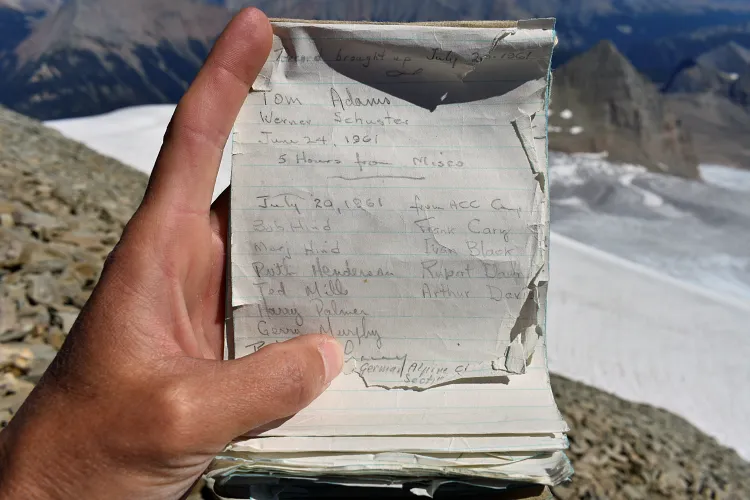 brought up July
Tom Adams
Werner Schuster
June 24, 1961
5 Hours from Misco
July 20, 1961 from ACC Camp
Bob Hind Frank Cary
Marj Hind Ivan Black
Ruth Henderson Rupert
Ted Mills Arthur
Harry Palmer
Gerry Murphy
German Alpine Cl
Section